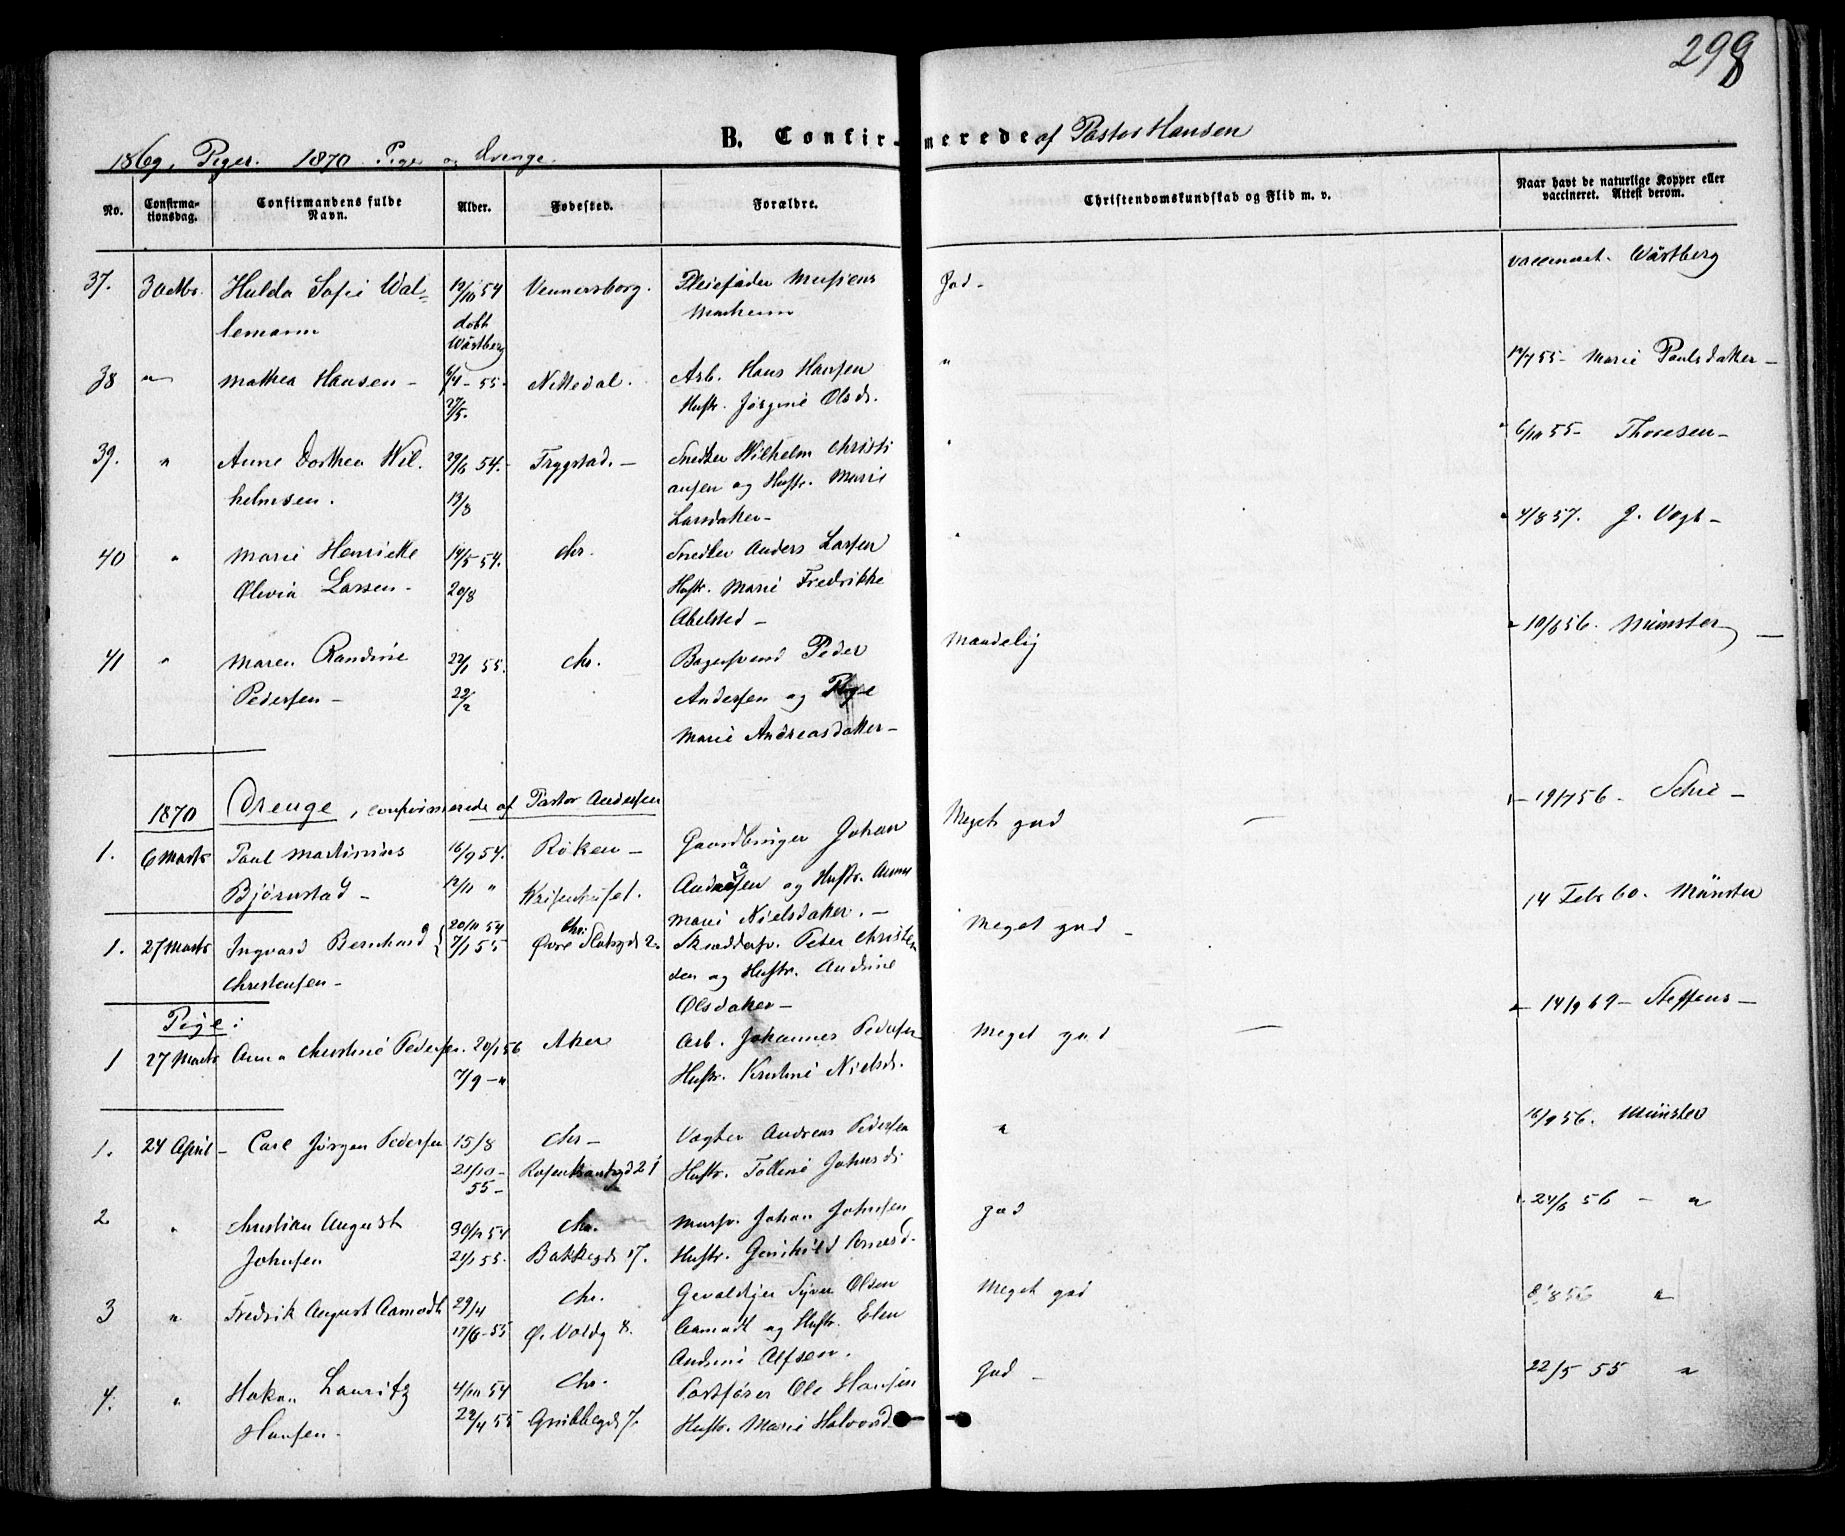 298
B. Confirmerede af Pastor Hansen
1869, Piger. 1870 Pige og Drenge.
No. Confirmationsdag. Confirmandens fulde Navn. Alder. Fødested. Forældre. Christendomskundskab og Flid m. v. Naar havt de naturlige Kopper eller vaccineret. Attest derom.
37. 3 Octbr. Hulda Sofie Wal- 19/10 54 Vennersborg. Pleiefader God - vaccineret. Wästberg
lemann døbt
Wästberg
38 " Mathea Hansen - 6/4 - 55. Nittedal. Arb. Hans Hansen " 19/7 55 - Marie Paulsdatter -
27/5. Hustr. Jørgine Olsdr.
39. " Anne Dorthea Wil- 29/6 54. - Trygstad. - Snedker Wilhelm Christi " 6/10 55 - Thoresen -
helmsen. 19/8 ansen og Hustr. Marie
Larsdatter -
40 " Marie Henriette 14/5 54. Chr. Snedker Anders Larsen " 4/8 57. J. Vogt -
Olivia Larsen - 20/8 Hustr. Marie Fredrikke
Abelsted -
41 " Maren Randine 22/1 55. Chr. Bagersvend Peder Maadelig 19/6 56. Münster -
Pedersen - 22/2 Andersen og Pige
Marie Andreasdatter -
1870 Drenge, confirmerede af Pastor Andersen
1. 6 Marts Paul Martinius 16/9 54. Røken - Gaardbruger Johan Meget god - - 19/7 56 - Schie -
Bjørnstad - 12/11 " Krisenhuset. Andersen og Hustr. Anne
Marie Nielsdatter. -
1. 27 Marts Ingvard Bernhard 20/11 54 Chr. Skrædersv. Peter Christen Meget god - 14 Feb 60. Münster
Christensen - 7/1 55 Øvre Slotsgd 2 sen og Hustr. Andrine
Olsdatter -
Pige:
1 27 Marts Anna Christine Pedersen. 20/1 56 Aker Arb. Johannes Pedersen Meget god - 14/9 69 - Steffens -
7/9 - " Hustr. Kristine Nielsd.
1. 24 April - Carl Jørgen Pedersen 15/8 Chr - Vagter Andreas Pedersen " 16/9 56. Münster
21/10 - Rosenkrantzgd 21 Hustr. Johnsd.
55 -
2 " Christian August 30/12 54 Chr. Mursv. Johan Johnsen god 24/6 56 - "
Johnsen 21/1 55. Bakkegd 17. Hustr. Gunhild Arnesd.
3 " Fredrik August Aamodt 29/4 Chr. Gevaldiger Syver Olsen Meget god 8/8 56 "
17/6 - 55 Ø. Voldg 8. Aamodt og Hustr. Elen
Andrine Alfsen.
4. " Hakon Lauritz 4/10 54 Chr. Postfører Ole Hansen God - 22/5 55 "
Hansen. 29/4 55 Grubbegd 7. Hustr. Marie Halvorsd.